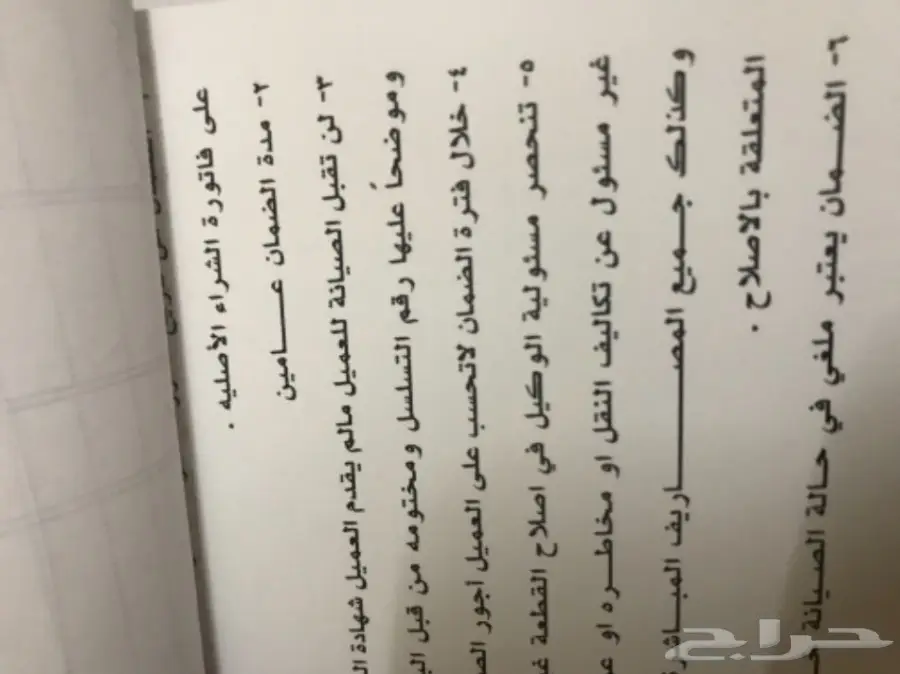 على فاتورة الشراء الأصليه .
٢- مدة الضمان عـــامين
٣- لن تقبل الصيانة للعميل مالم يقدم العميل شهادة
وموضحاً عليها رقم التسلسل ومختومه من قبل
٤- خلال فترة الضمان لاتحسب على العميل اجور
٥- تنحصر مسئولية الوكيل في اصلاح القطعة
غير مسئول عن تكاليف النقل او مخاطـره او
وكذلك جـميع المصـــــاريف المبـاشرة
المتعلقة بالاصلاح .
٦- الضـمان يعتبر ملغي في حالة الصـيانة
حراج